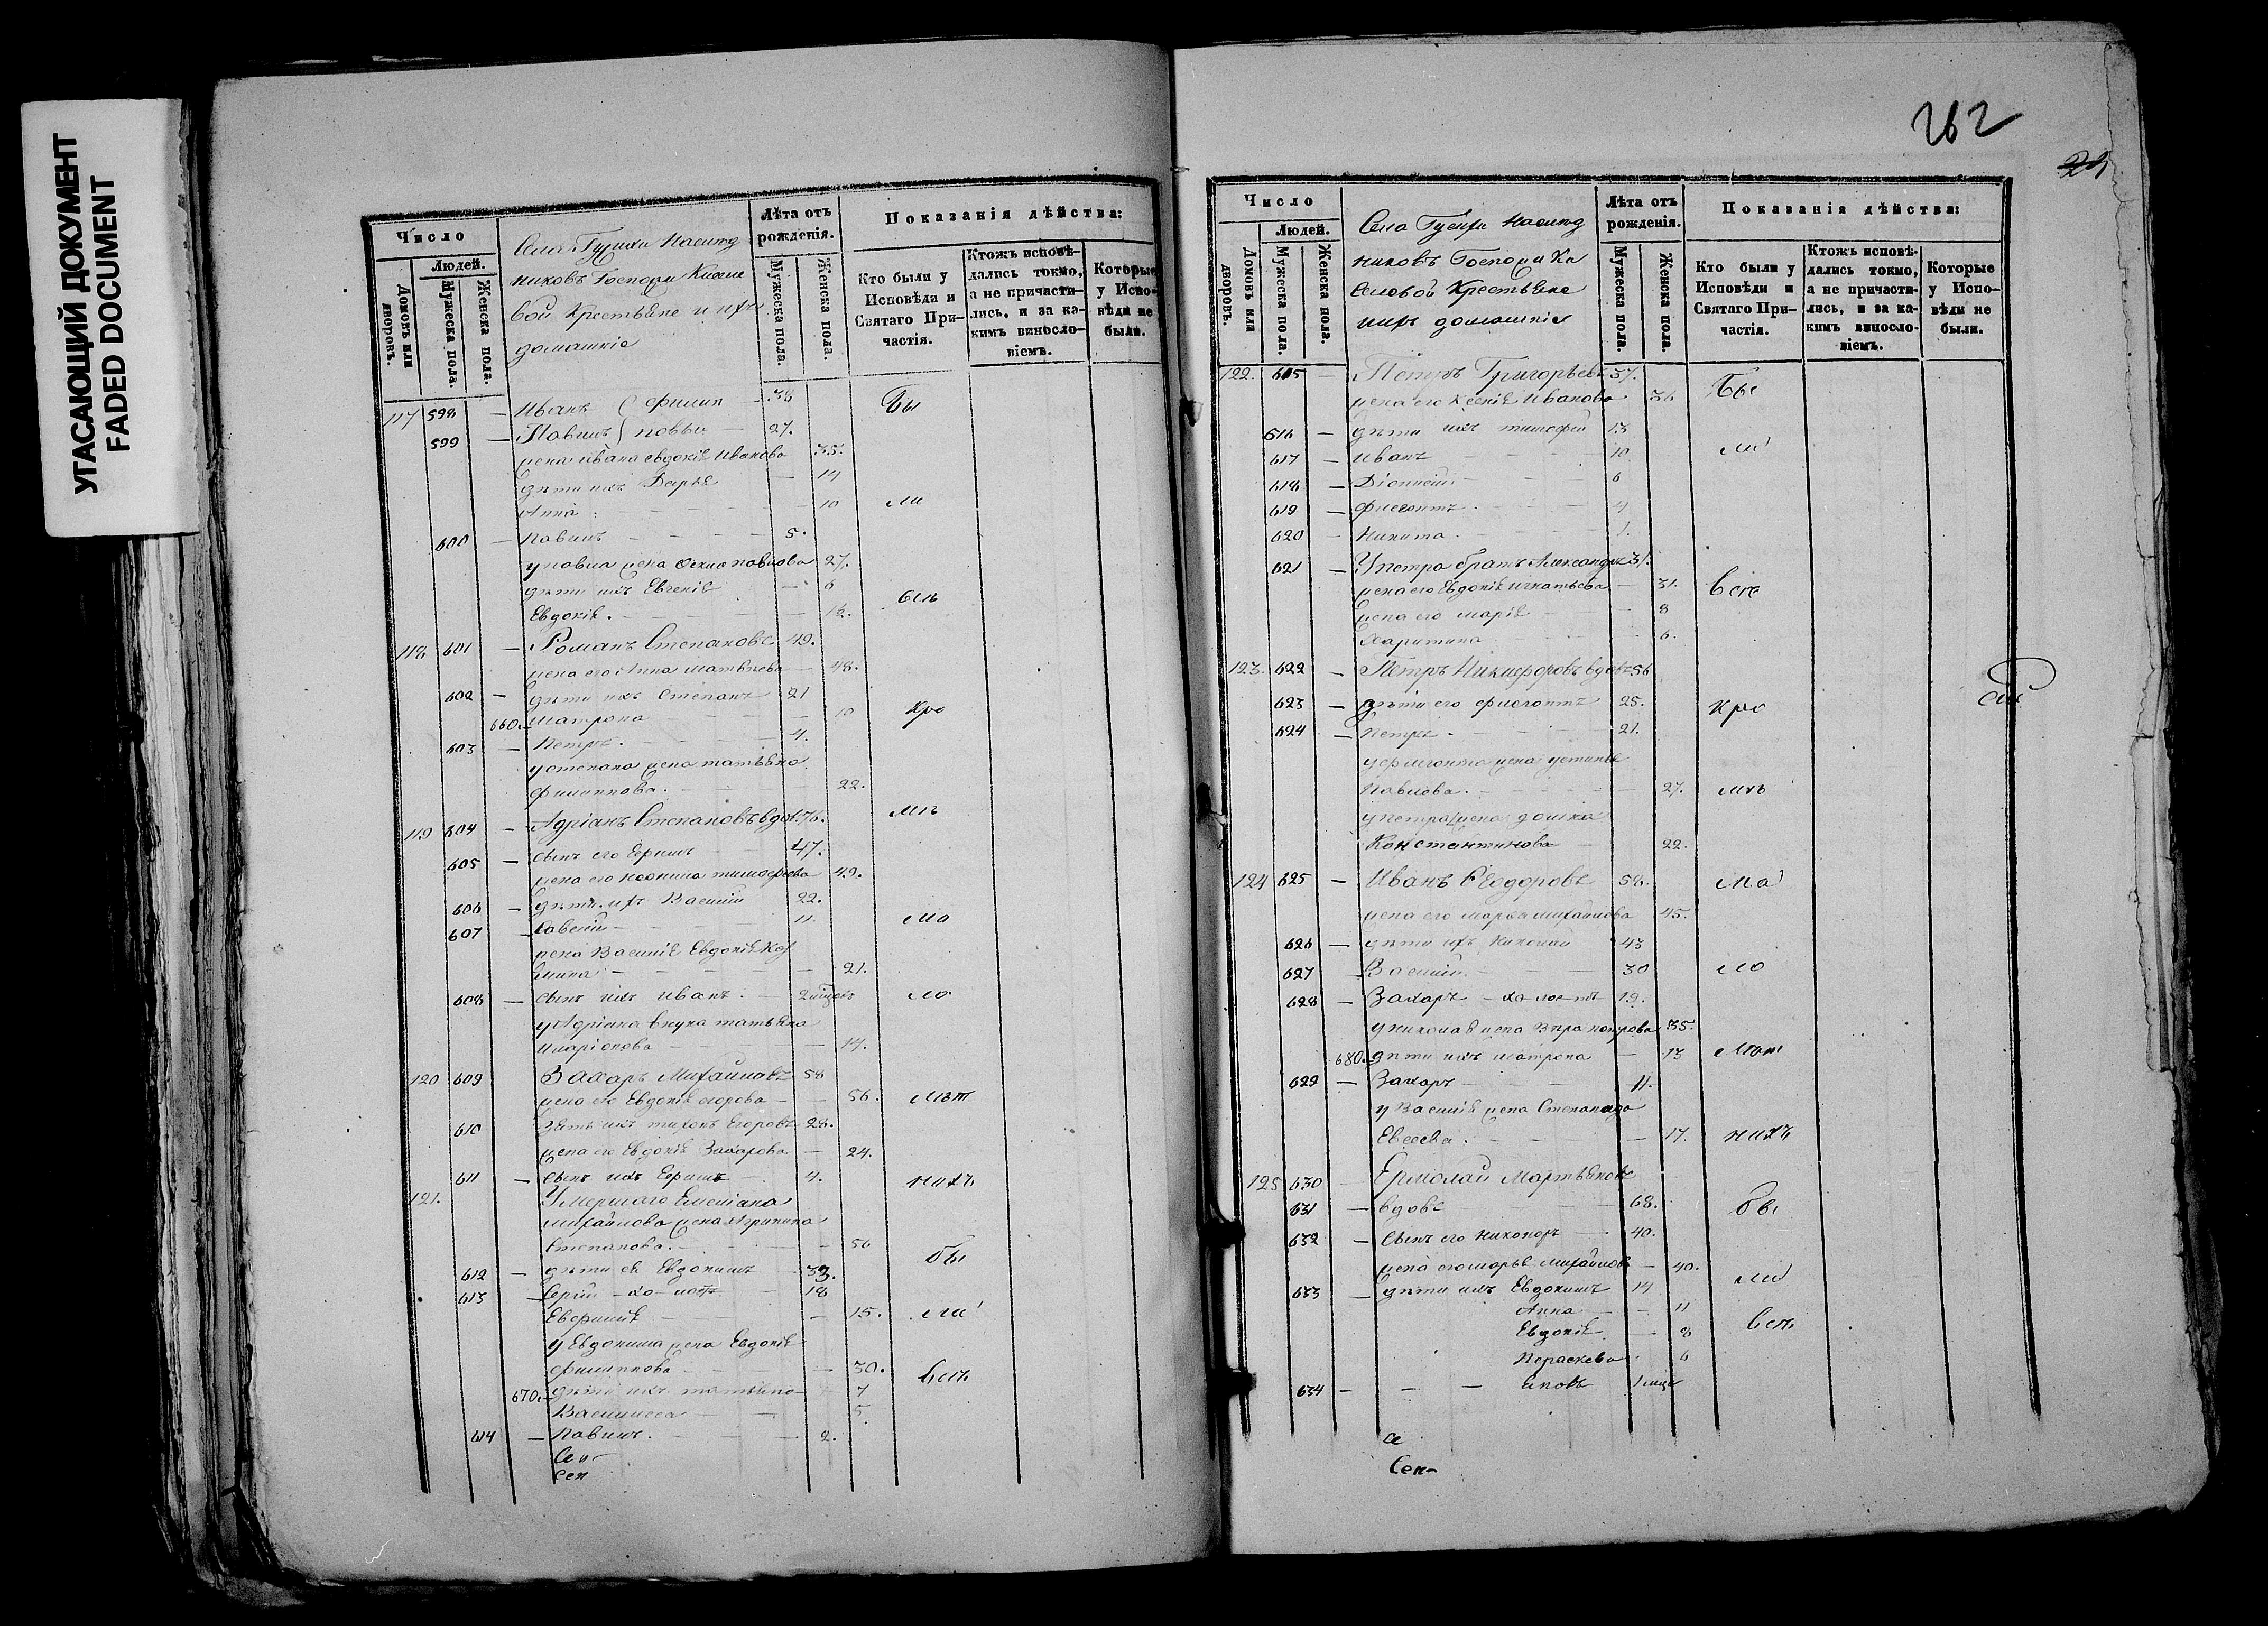 УГАСАЮЩИЙ ДОКУМЕНТ
FADED DOCUMENT
Число
Людей.
Домовъ или дворовъ.
Мужеска пола.
Женска пола.
Села Гусихи Наслед
никовъ Госпожи Кисле
вой Крестьяне и ихъ
домашніе
Лѣта отъ рожденія.
Мужеска пола.
Женска пола.
Показанія дѣйства:
Кто были у Исповѣди и Святаго Причастія.
Ктожъ исповѣдались токмо, а не причастились, и за какимъ винословіемъ.
Которые у Исповѣди не были.
117 598 — Иванъ Филип — 38 Бы
599 — Павилъ повы — 27.
жена ивана евдокія Иванова 35.
дѣти ихъ Дарья — 14
Анна 10 ли
600 — Павилъ 5.
у павла жена павлова 27.
дѣти ихъ Евгенія — 6
Евдокія. 12.
118 601 — Романъ Степановъ 49.
жена его Анна Матвѣева — 48.
602 — дѣти ихъ Степанъ 21
660. Матрона 10 Кро
603 — Петръ. 4.
у степана жена татьяна
филиппова. 22.
119 604 — Адріанъ Степановъ вдов. 76. мѣ
605 — сынъ его Ефимъ 47.
жена его тимофеева 49.
606 — дѣти ихъ Василій 22.
607 — Савелій 11. ма
жена Василія Евдокія Коз
мина 21.
608 — сынъ ихъ иванъ. — ло
у Адріана внука татьяна
иларіонова 14.
120 609 Захаръ Михайловъ 58
жена его Евдокія егорова — 56. лѣт
610 Зять ихъ тихонъ Егоровъ 28.
жена его Евдокія Захарова — 24.
611 — сынъ ихъ Ефимъ 4. нихъ
121. Умершаго Емеліана
михайлова жена Агрипина
Степанова. 50
612 — дѣти ея Евдокимъ 33. бы
613 — Сергій — хо-лостъ — 18
Евфимія 15. ли
у Евдокима жена Евдокія
филиппова 30.
670. дѣти ихъ татьяна — 7
Василисса 5.
614 — Павилъ. 2.
Се
Сел
262
Число
Людей.
Домовъ или дворовъ.
Мужеска пола.
Женска пола.
Села Гусихи Наслед
никовъ Госпожи Ки
селовой Крестьяне
ихъ домашніе
Лѣта отъ рожденія.
Мужеска пола.
Женска пола.
Показанія дѣйства:
Кто были у Исповѣди и Святаго Причастія.
Ктожъ исповѣдались токмо, а не причастились, и за какимъ винословіемъ.
Которые у Исповѣди не были.
122. 615 — Петръ Григорьевъ 37. Бы
жена его Ксенія Иванова 36
616 — дѣти ихъ тимофей 13
617 — Иванъ 10 ли
618 — Діонисій 6
619 — Флегонтъ 4
620 — Никита. 1.
621 — У петра братъ Александръ 31.
жена его Евдокія игнатьева — 31.
марія 8
Харитина 6.
123. 622 — Петръ Никифоровъ вдовъ 56
623 — дѣти его флегонтъ 25. Кро
624 — Петръ. 21.
у флегонта жена устинья
павлова. 27. мѣ
у петра жена домна
Константинова 22.
124 625 — Иванъ Ѳеодоровъ 58. ма
жена его марья михайлова 45.
626 — дѣти ихъ Николай 43
627 — Василій 30 ло
628 — Захаръ — хо-лостъ 19.
у николая жена петрова 35.
680. дѣти ихъ матрона — 13 лѣт
629 — Захаръ 11.
у Василія жена Степанида
Евсеева. — 17. нихъ
125 630 Ермолай Мартьяновъ
631 — вдовъ 68. бы
632 — сынъ его никоноръ 40.
жена его марья михайлова — 40.
633 — дѣти ихъ Евдокимъ 14 ли
Анна — 11
Евдокія — 8
Параскева 6
634 — — — Яковъ
Се
Сел-